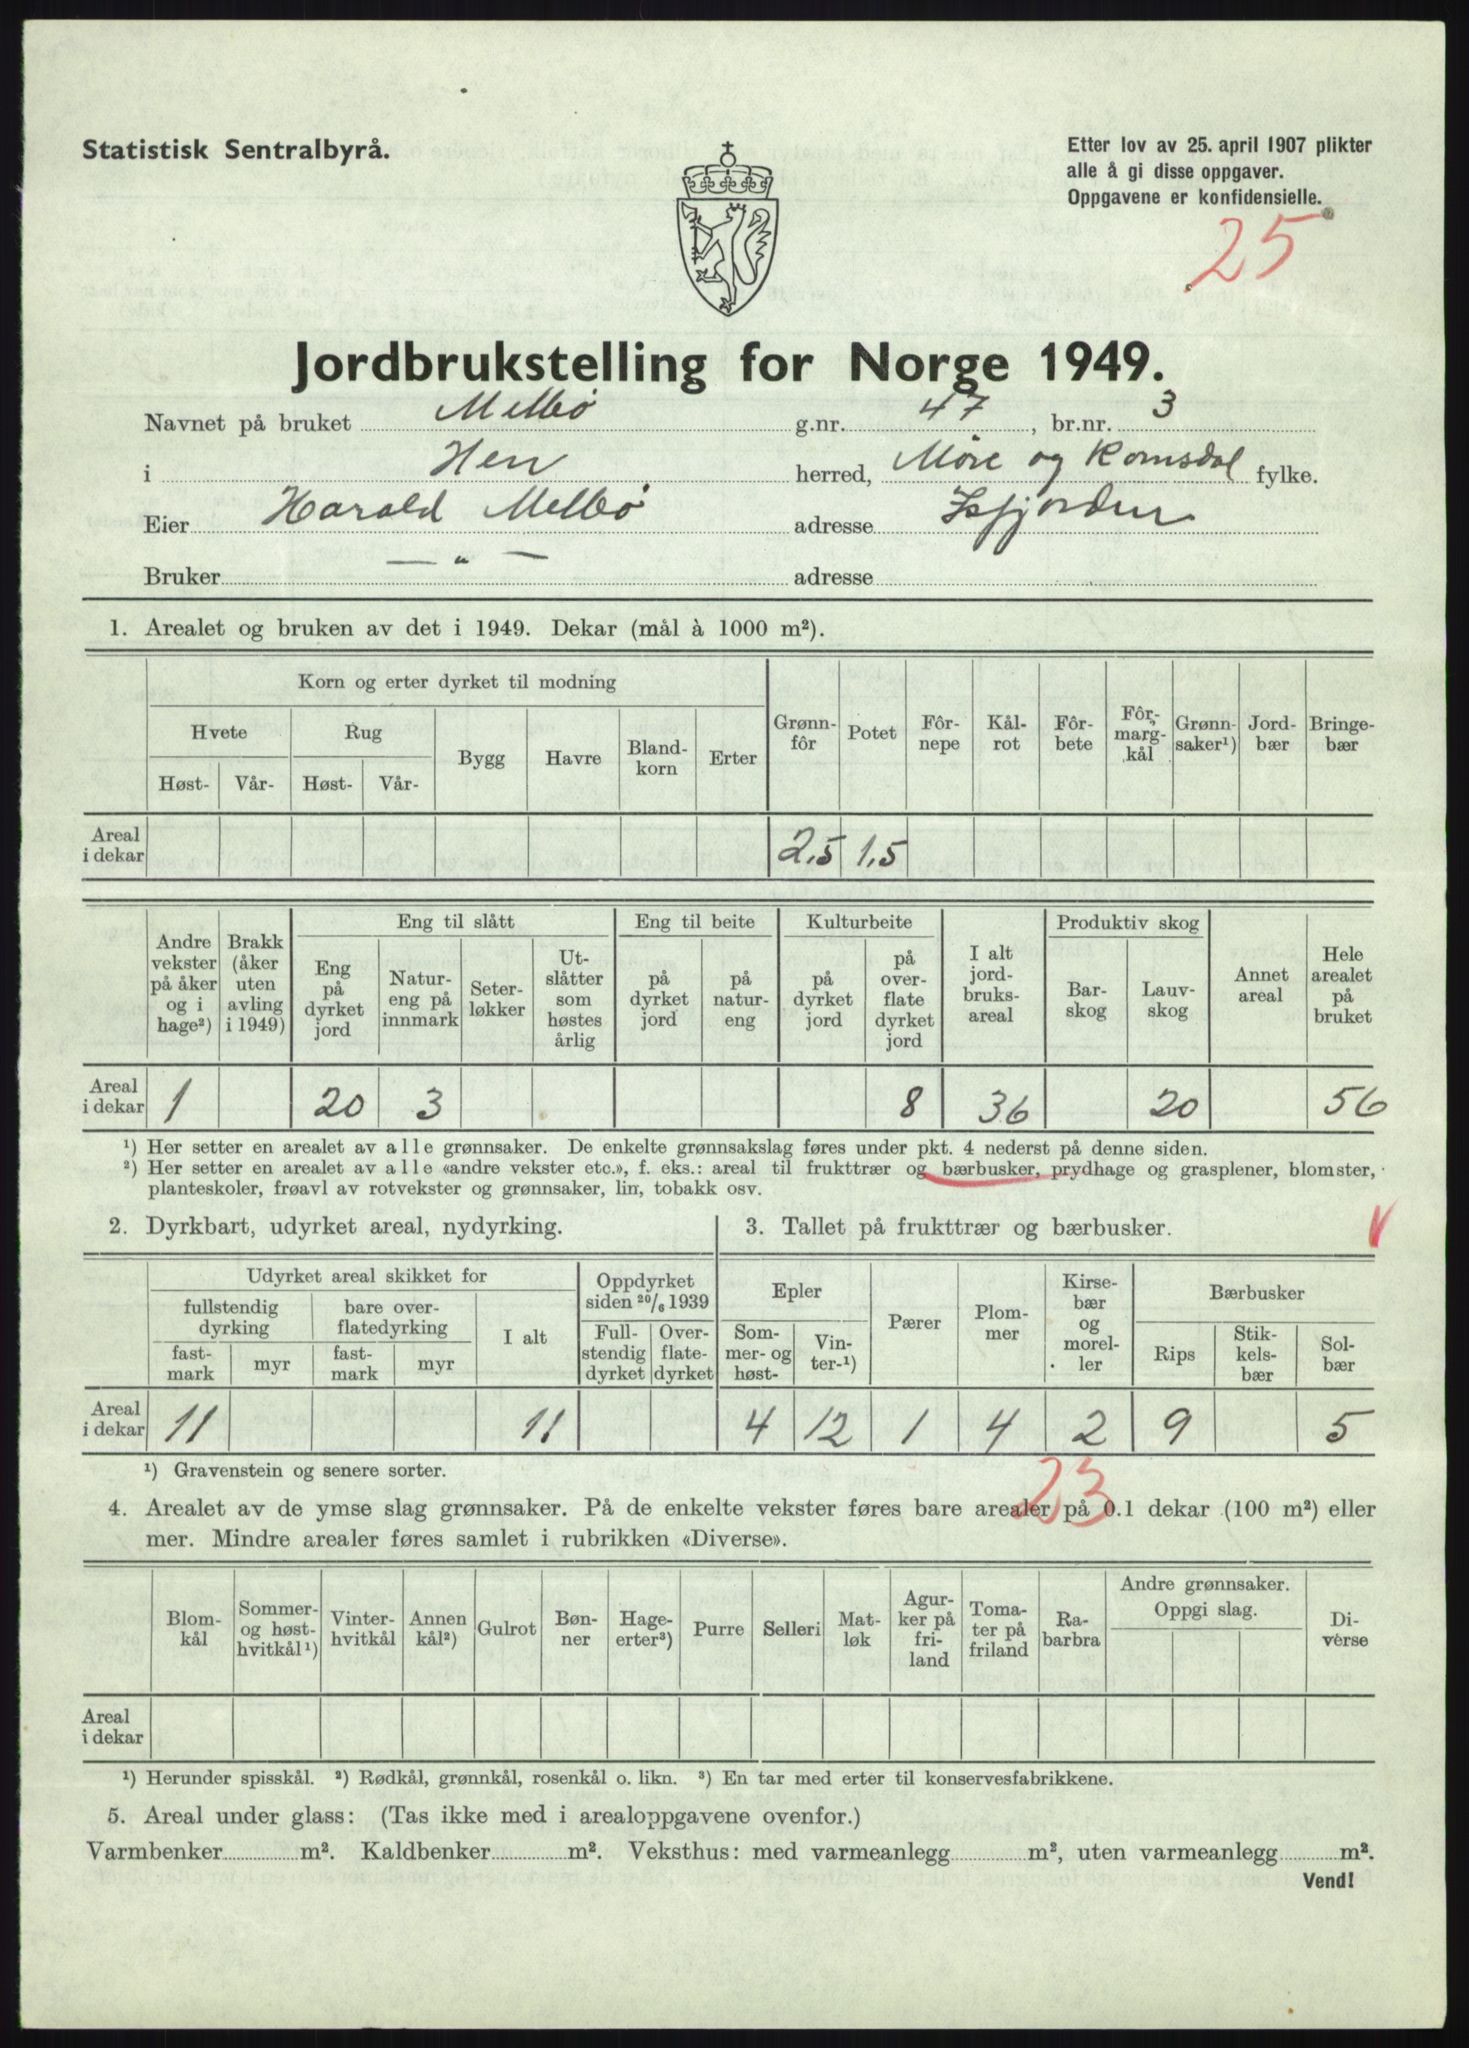 Statistisk Sentralbyrå.
Etter lov av 25. april 1907 plikter
alle å gi disse oppgaver.
Oppgavene er konfidensielle.
25
Jordbrukstelling for Norge 1949.
Navnet på bruket Melbø g.nr. 47, br.nr. 3
i Hen herred, Møre og Romsdal fylke.
Eier Harald Melbø adresse Isfjorden
Bruker — " — adresse
1. Arealet og bruken av det i 1949. Dekar (mål à 1000 m²).
Korn og erter dyrket til modning
Hvete Rug Bygg Havre Bland-korn Erter Grønn-fôr Potet Fôr-nepe Kål-rot Fôr-bete Fôr-marg-kål Grønn-saker¹) Jord-bær Bringe-bær
Høst- Vår- Høst- Vår-
Areal i dekar 2,5 1,5
Eng til slått Eng til beite Kulturbeite Produktiv skog
Andre vekster på åker og i hage²) Brakk (åker uten avling i 1949) Eng på dyrket jord Natur-eng på innmark Seter-løkker Ut-slåtter som høstes årlig på dyrket jord på natur-eng på dyrket jord på over-flate dyrket jord I alt jord-bruks-areal Bar-skog Lauv-skog Annet areal Hele arealet på bruket
Areal i dekar 1 20 3 8 36 20 56
¹) Her setter en arealet av alle grønnsaker. De enkelte grønnsakslag føres under pkt. 4 nederst på denne siden.
²) Her setter en arealet av alle «andre vekster etc.», f. eks.: areal til frukttrær og bærbusker, prydhage og grasplener, blomster,
planteskoler, frøavl av rotvekster og grønnsaker, lin, tobakk osv.
2. Dyrkbart, udyrket areal, nydyrking.
3. Tallet på frukttrær og bærbusker.
Udyrket areal skikket for Oppdyrket siden 20/6 1939 Epler Pærer Plom-mer Kirse-bær og morel-ler Bærbusker
fullstendig dyrking bare over-flatedyrking I alt Full-stendig dyrket Over-flate-dyrket Som-mer- og høst- Vin-ter-¹) Rips Stik-kels-bær Sol-bær
fast-mark myr fast-mark myr
Areal i dekar 11 11 4 12 1 4 2 9 5
¹) Gravenstein og senere sorter.
23
4. Arealet av de ymse slag grønnsaker. På de enkelte vekster føres bare arealer på 0.1 dekar (100 m²) eller
mer. Mindre arealer føres samlet i rubrikken «Diverse».
Blom-kål Sommer- og høst-hvitkål¹) Vinter-hvitkål Annen kål²) Gulrot Bøn-ner Hage-erter³) Purre Selleri Mat-løk Agur-ker på fri-land Toma-ter på friland Ra-barbra Andre grønnsaker. Oppgi slag. Di-verse
Areal i dekar
¹) Herunder spisskål. ²) Rødkål, grønnkål, rosenkål o. likn. ³) En tar med erter til konservesfabrikkene.
5. Areal under glass: (Tas ikke med i arealoppgavene ovenfor.)
Varmbenker m². Kaldbenker m². Veksthus: med varmeanlegg m², uten varmeanlegg m².
Vend!